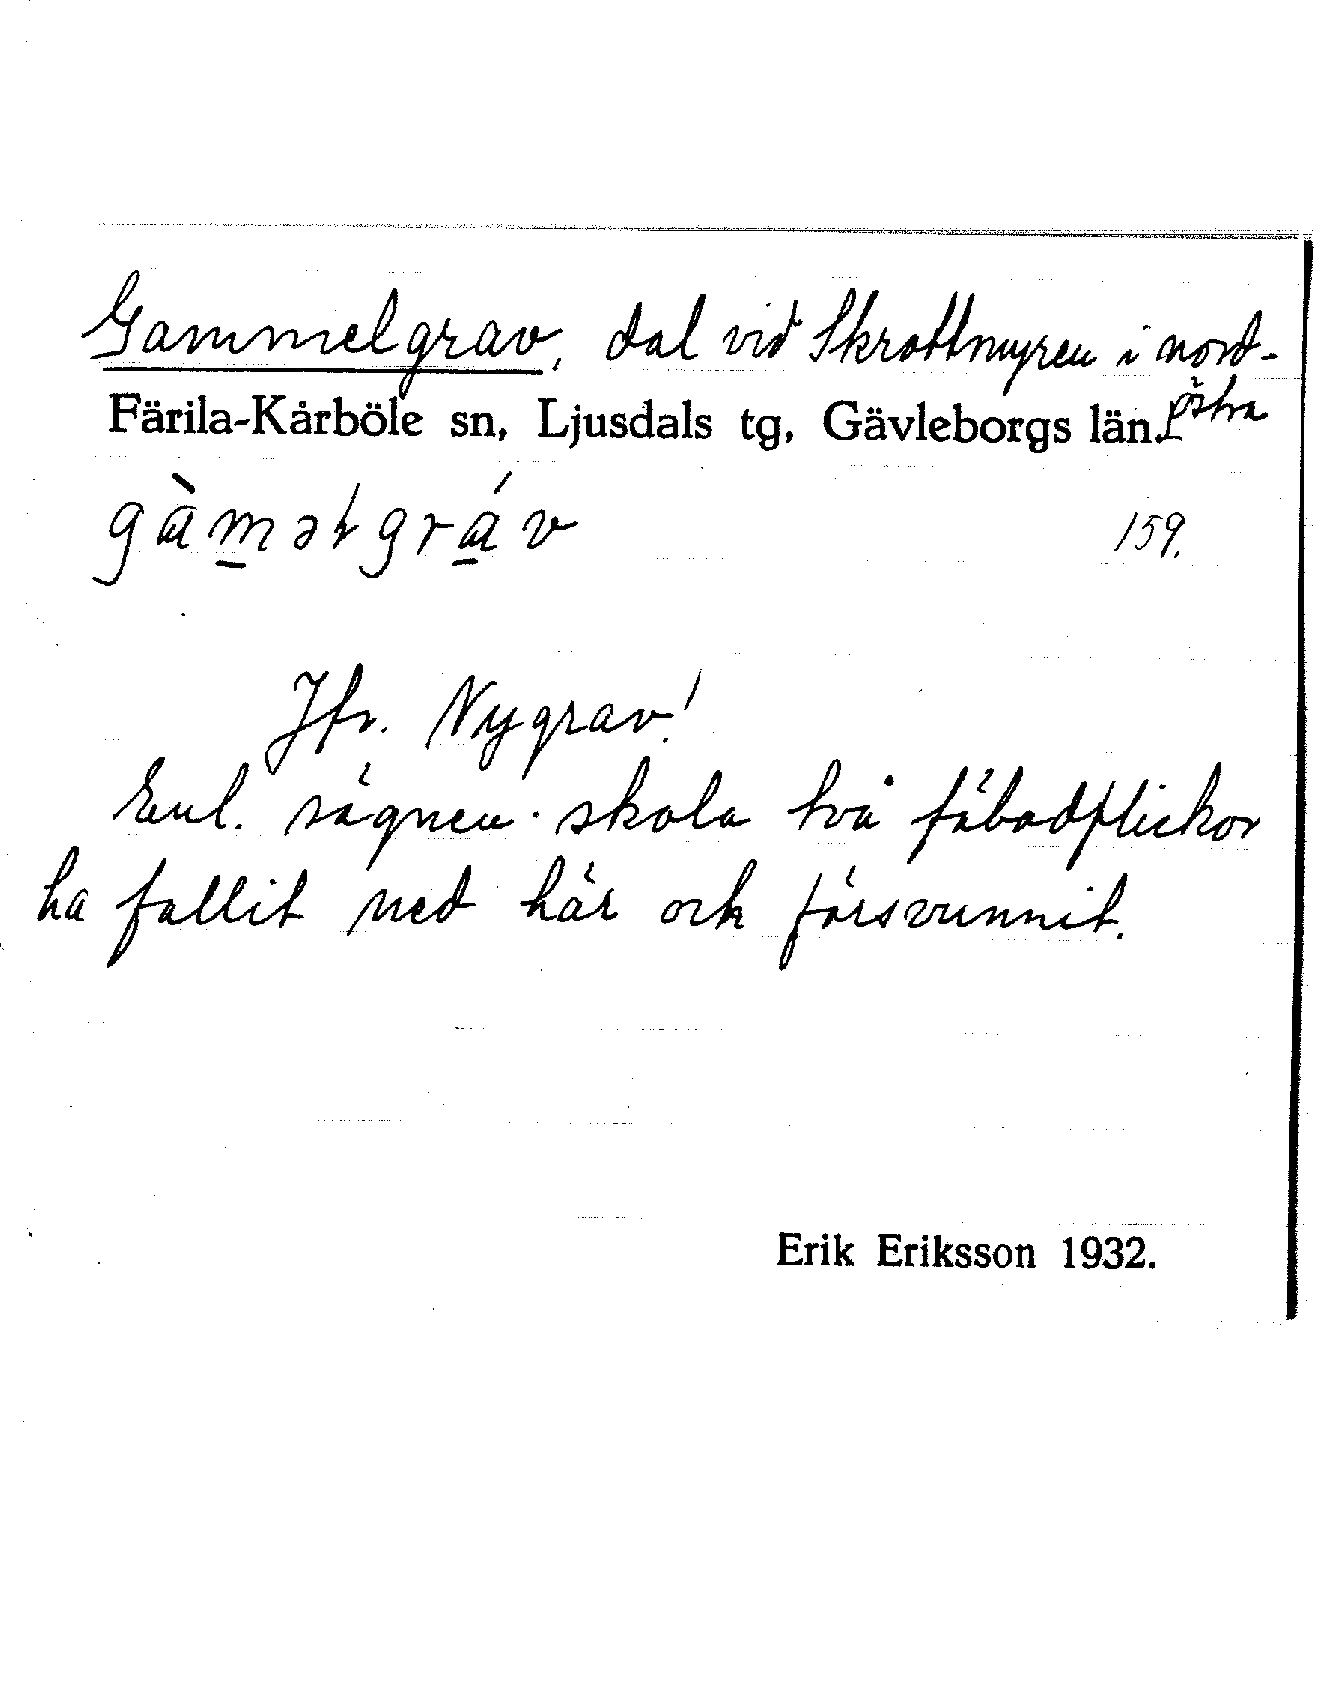 Gammelgrav, dal vid Skrottmyren i nord-
östra
Färila-Kårböle sn, Ljusdals tg, Gävleborgs län.
gàməłgráv
159.
Jfr. Nygrav!
Enl. sägnen skola två fäbodflickor
ha fallit ned här och försvunnit.
Erik Eriksson 1932.